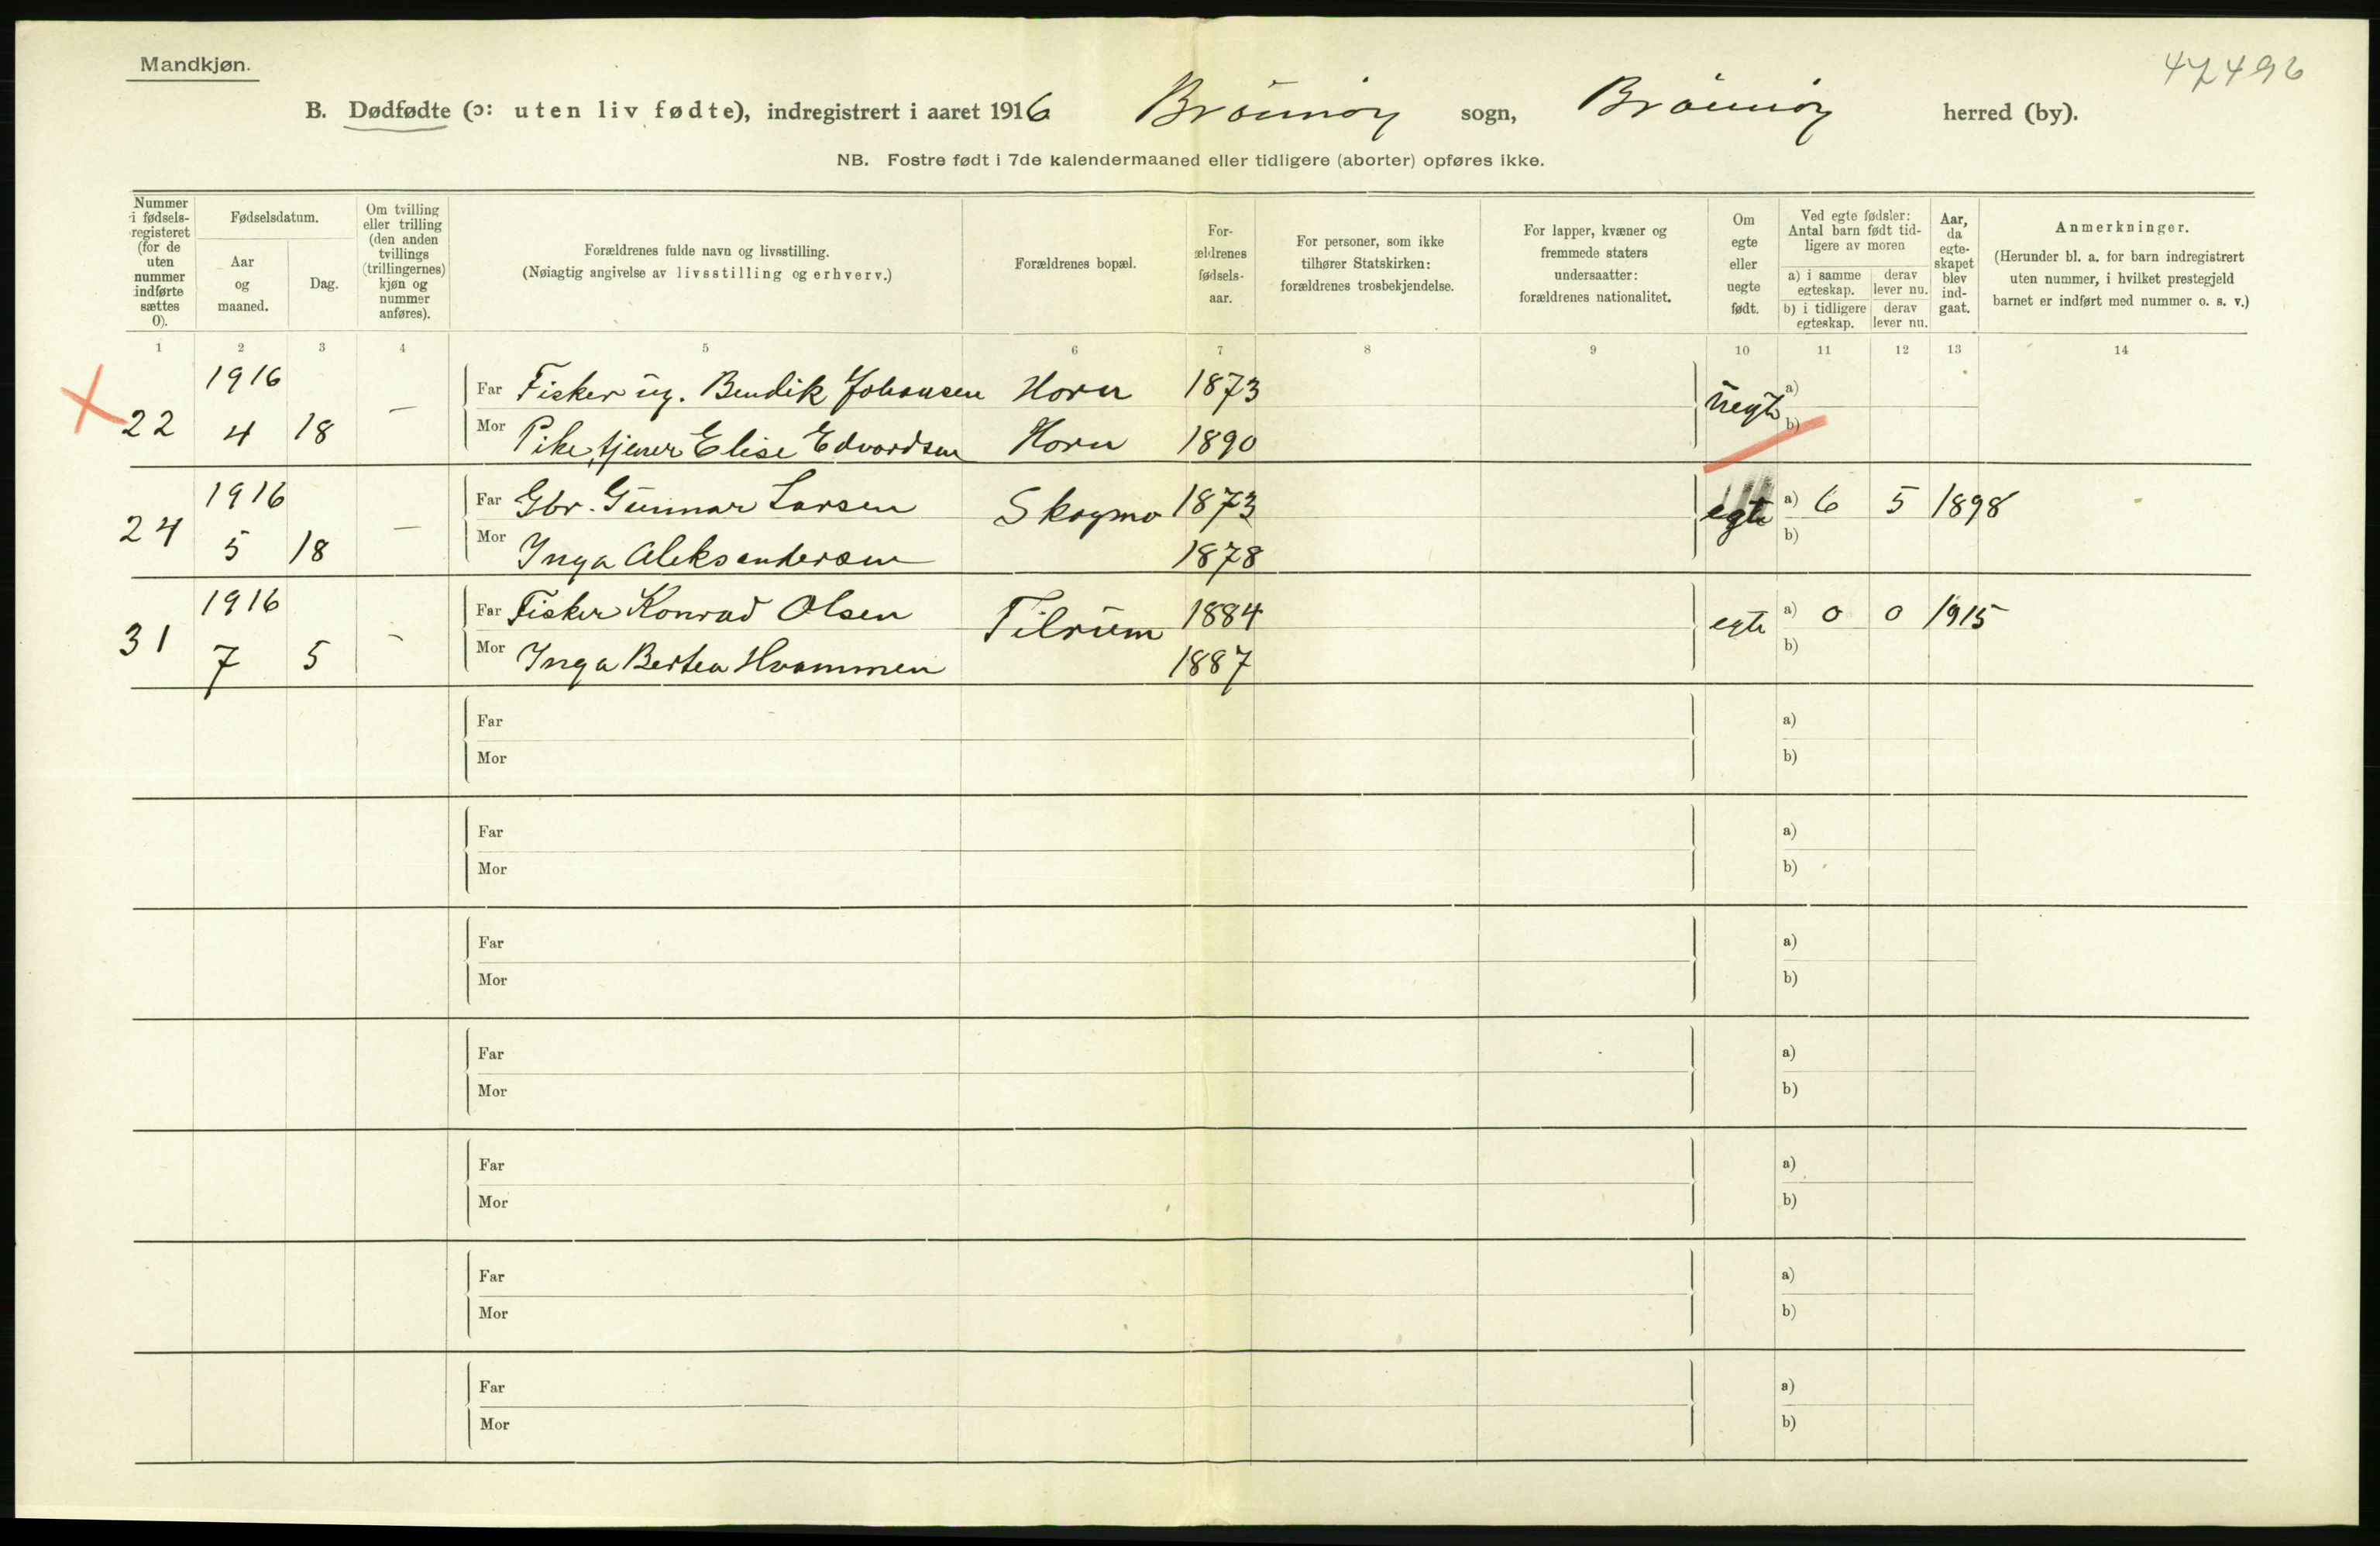 Mandkjøn.
47496
B. Dødfødte (ɔ: uten liv fødte), indregistrert i aaret 1916 Brönnöy sogn, Brönnöy herred (by).
NB. Fostre født i 7de kalendermaaned eller tidligere (aborter) opføres ikke.
Nummer i fødsels-registeret (for de uten nummer indførte sættes 0).
Fødselsdatum.
Aar og maaned.
Dag.
Om tvilling eller trilling (den anden tvillings (trillingernes) kjøn og nummer anføres).
Forældrenes fulde navn og livsstilling.
(Nøiagtig angivelse av livsstilling og erhverv.)
Forældrenes bopæl.
For-ældrenes fødsels-aar.
For personer, som ikke tilhører Statskirken: forældrenes trosbekjendelse.
For lapper, kvæner og fremmede staters undersaatter: forældrenes nationalitet.
Om egte eller uegte født.
Ved egte fødsler: Antal barn født tid-ligere av moren
a) i samme egteskap.
derav lever nu.
b) i tidligere egteskap.
derav lever nu.
Aar, da egte-skapet blev ind-gaat.
Anmerkninger.
(Herunder bl. a. for barn indregistrert uten nummer, i hvilket prestegjeld barnet er indført med nummer o. s. v.)
1 2 3 4 5 6 7 8 9 10 11 12 13 14
1916 Far Fisker ug. Bendik Johansen Horn 1873 uegte a)
22 4 18 — Mor Pike, tjener Elise Edvardsen Horn 1890 b)
1916 Far Gbr. Gunnar Larsen Skogmo 1873 egte a) 6 5 1898
24 5 18 — Mor Inga Aleksandersen 1878 b)
1916 Far Fisker Konrad Olsen Tilrum 1884 egte a) 0 0 1915
31 7 5 — Mor Inga Bertea Hvammen 1887 b)
Far a)
Mor b)
Far a)
Mor b)
Far a)
Mor b)
Far a)
Mor b)
Far a)
Mor b)
Far a)
Mor b)
Far a)
Mor b)